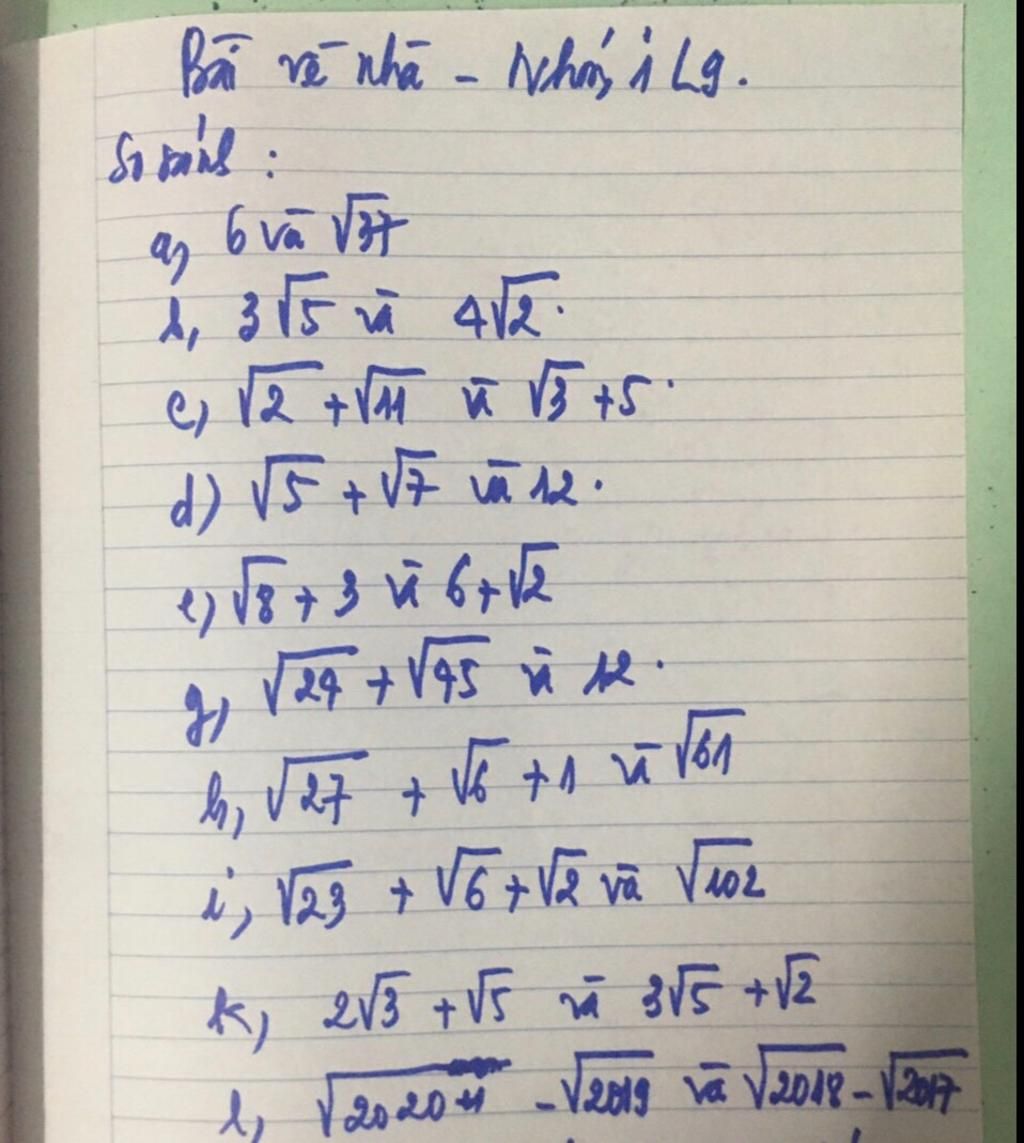 Bài về nhà - Nhóm 1 L9.
So sánh :
a, 6 và √37
b, 3√5 và 4√2.
c, √2 + √11 và √3 + 5.
d) √5 + √7 và 12.
e, √8 + 3 và 6 + √2
g, √24 + √45 và 12.
h, √27 + √6 + 1 và √61
i, √23 + √6 + √2 và √102
k, 2√3 + √5 và 3√5 + √2
l, √2020 - √2019 và √2018 - √2017